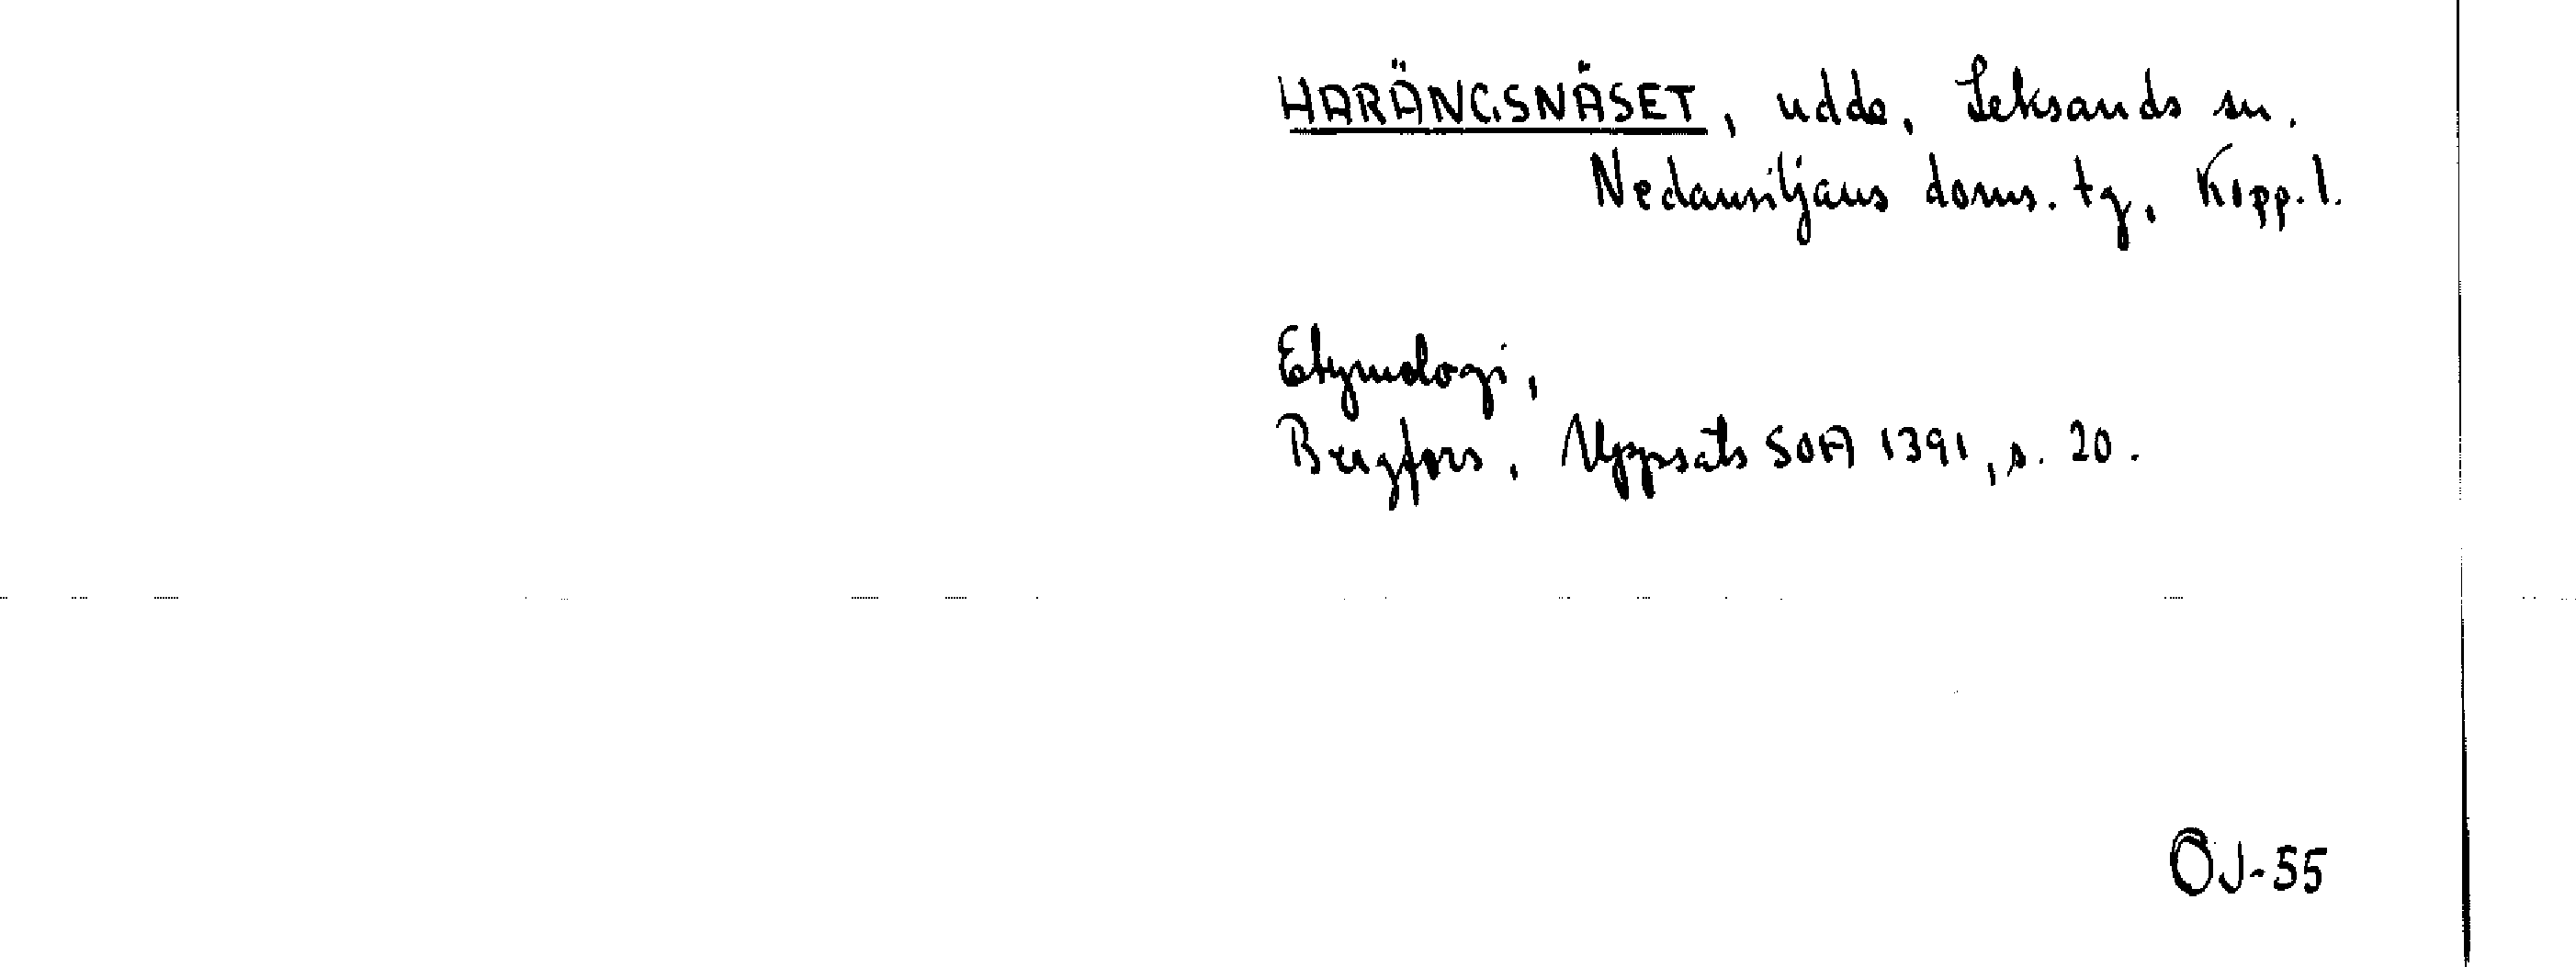 HARÄNGSNÄSET, udde, Leksands sn.
Nedansiljans doms. tg, Kopp. l.
Etymologi,
Bergfors, Uppsats SOA 1391, s. 20.
OJ-55